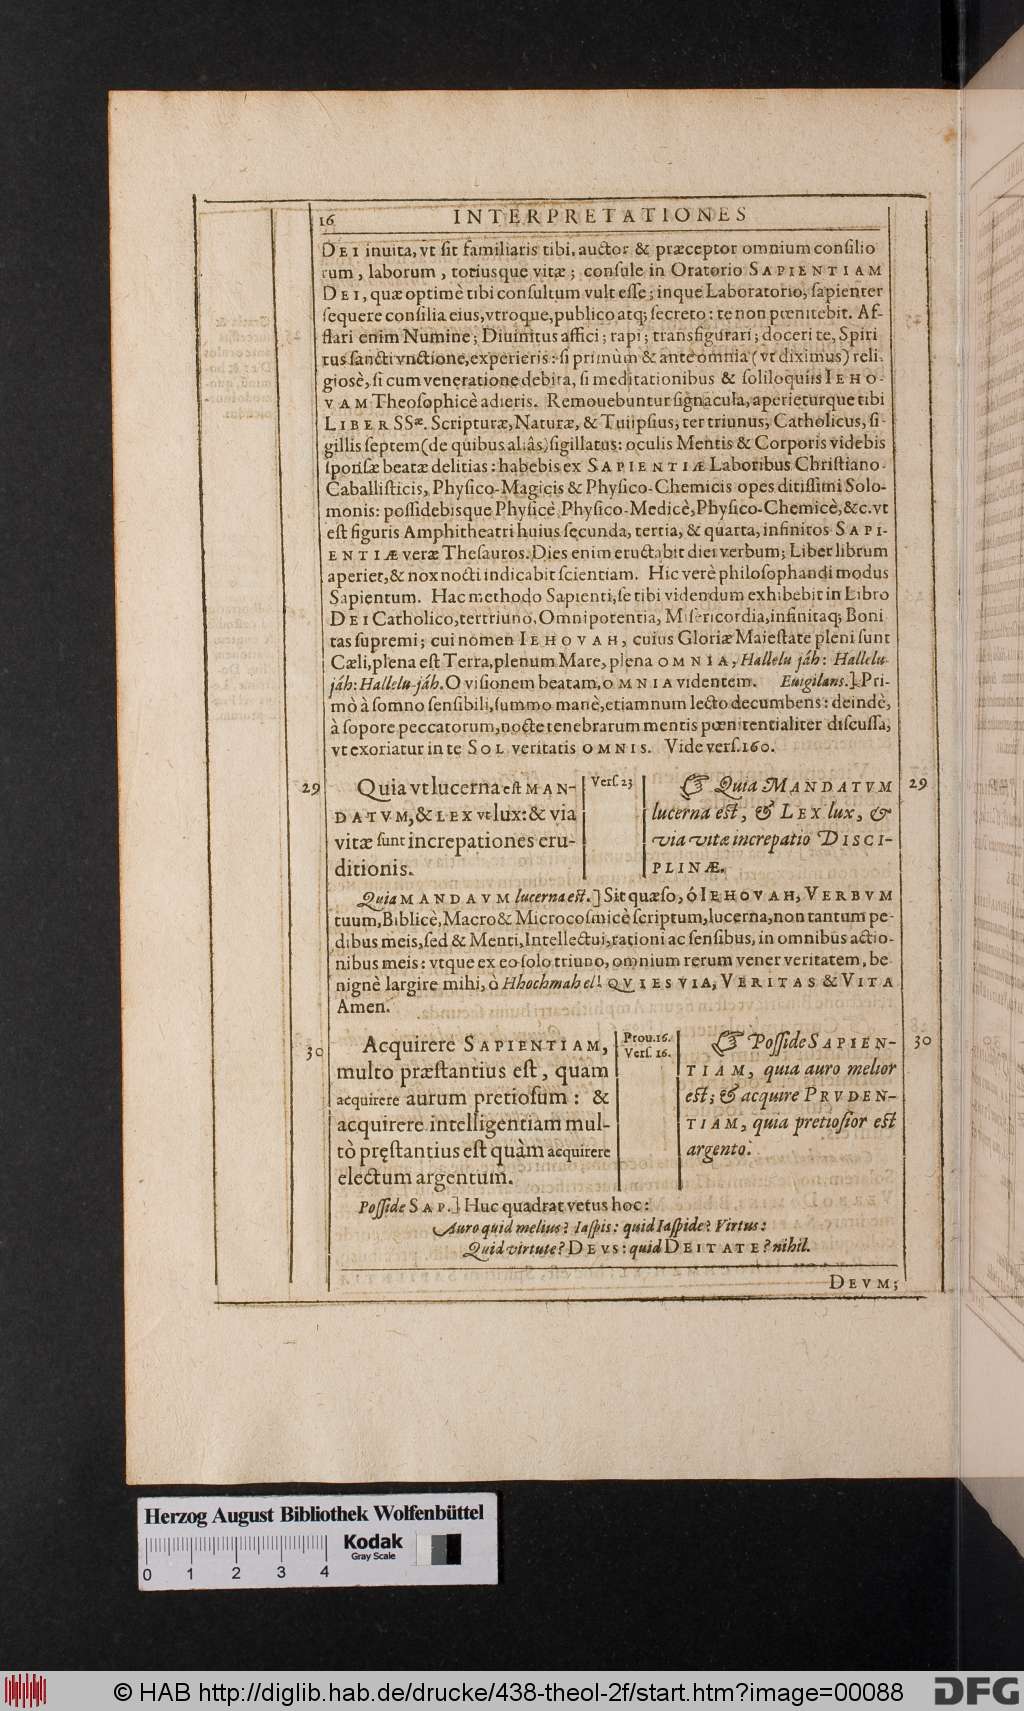 16 INTERPRETATIONES
DEI inuita, vt sit familiaris tibi, auctor & præceptor omnium consilio
rum, laborum, totiusque vitæ; consule in Oratorio SAPIENTIAM
DEI, quæ optimè tibi consultum vult esse; inque Laboratorio, sapienter
sequere consilia eius, vtroque, publico atq; secreto: te non pœnitebit. Af-
flari enim Numine; Diuinitus affici; rapi; transfigurari; doceri te, Spiri
tus sancti vnctione, experieris: si primùm & ante omnia (vt diximus) reli-
giosè, si cum veneratione debita, si meditationibus & soliloquiis IEHO-
VAM Theosophicè adieris. Remouebuntur signacula, aperieturque tibi
LIBER SSæ. Scripturæ, Naturæ, & Tuiipsius, ter triunus, Catholicus, si-
gillis septem (de quibus aliâs) sigillatus: oculis Mentis & Corporis videbis
sponsæ beatæ delitias: habebis ex SAPIENTIÆ Laboribus Christiano-
Caballisticis, Physico-Magicis & Physico-Chemicis opes ditissimi Solo-
monis: possidebisque Physicè, Physico-Medicè, Physico-Chemicè, &c. vt
est figuris Amphitheatri huius secunda, tertia, & quarta, infinitos SAPI-
ENTIÆ veræ Thesauros. Dies enim eructabit diei verbum; Liber librum
aperiet, & nox nocti indicabit scientiam. Hic verè philosophandi modus
Sapientum. Hac methodo Sapienti, se tibi videndum exhibebit in Libro
DEI Catholico, tertriuno, Omnipotentia, Misericordia, infinitaq; Boni
tas supremi; cui nomen IEHOVAH, cuius Gloriæ Maiestate pleni sunt
Cæli, plena est Terra, plenum Mare, plena OMNIA, Hallelu jáh: Hallelu-
jáh: Hallelu-jáh. O visionem beatam, OMNIA videntem. Euigilans.] Pri-
mò à somno sensibili, summo manè, etiamnum lecto decumbens: deindè,
à sopore peccatorum, nocte tenebrarum mentis pœnitentialiter discussa,
vt exoriatur in te SOL veritatis OMNIS. Vide vers. 160.
29 Quia vt lucerna est MAN-
DATVM, & LEX vt lux: & via
vitæ sunt increpationes eru-
ditionis.
Vers. 23
☞ Quia MANDATVM 29
lucerna est, & LEX lux, &
via vitæ increpatio DISCI-
PLINÆ.
Quia MANDAVM lucerna est.] Sit quæso, ó IEHOVAH, VERBVM
tuum, Biblicè, Macro & Microcosmicè scriptum, lucerna, non tantum pe-
dibus meis, sed & Menti, Intellectui, rationi ac sensibus, in omnibus actio-
nibus meis: vtque ex eo solo triuno, omnium rerum vener veritatem, be-
nignè largire mihi, ò Hhochmah el! QVI ES VIA, VERITAS & VITA
Amen.
30 Acquirere SAPIENTIAM,
multo præstantius est, quàm
acquirere aurum pretiosum: &
acquirere intelligentiam mul-
tò pręstantius est quàm acquirere
electum argentum.
Prou. 16.
Vers. 16.
☞ Posside SAPIEN- 30
TIAM, quia auro melior
est; & acquire PRVDEN-
TIAM, quia pretiosior est
argento.
Posside SAP.] Huc quadrat vetus hoc:
Auro quid melius? Iaspis: quid Iaspide? Virtus:
Quid virtute? DEVS: quid DEITATE? nihil.
DEVM;
Herzog August Bibliothek Wolfenbüttel
Kodak
Gray Scale
0 1 2 3 4
© HAB http://diglib.hab.de/drucke/438-theol-2f/start.htm?image=00088
DFG